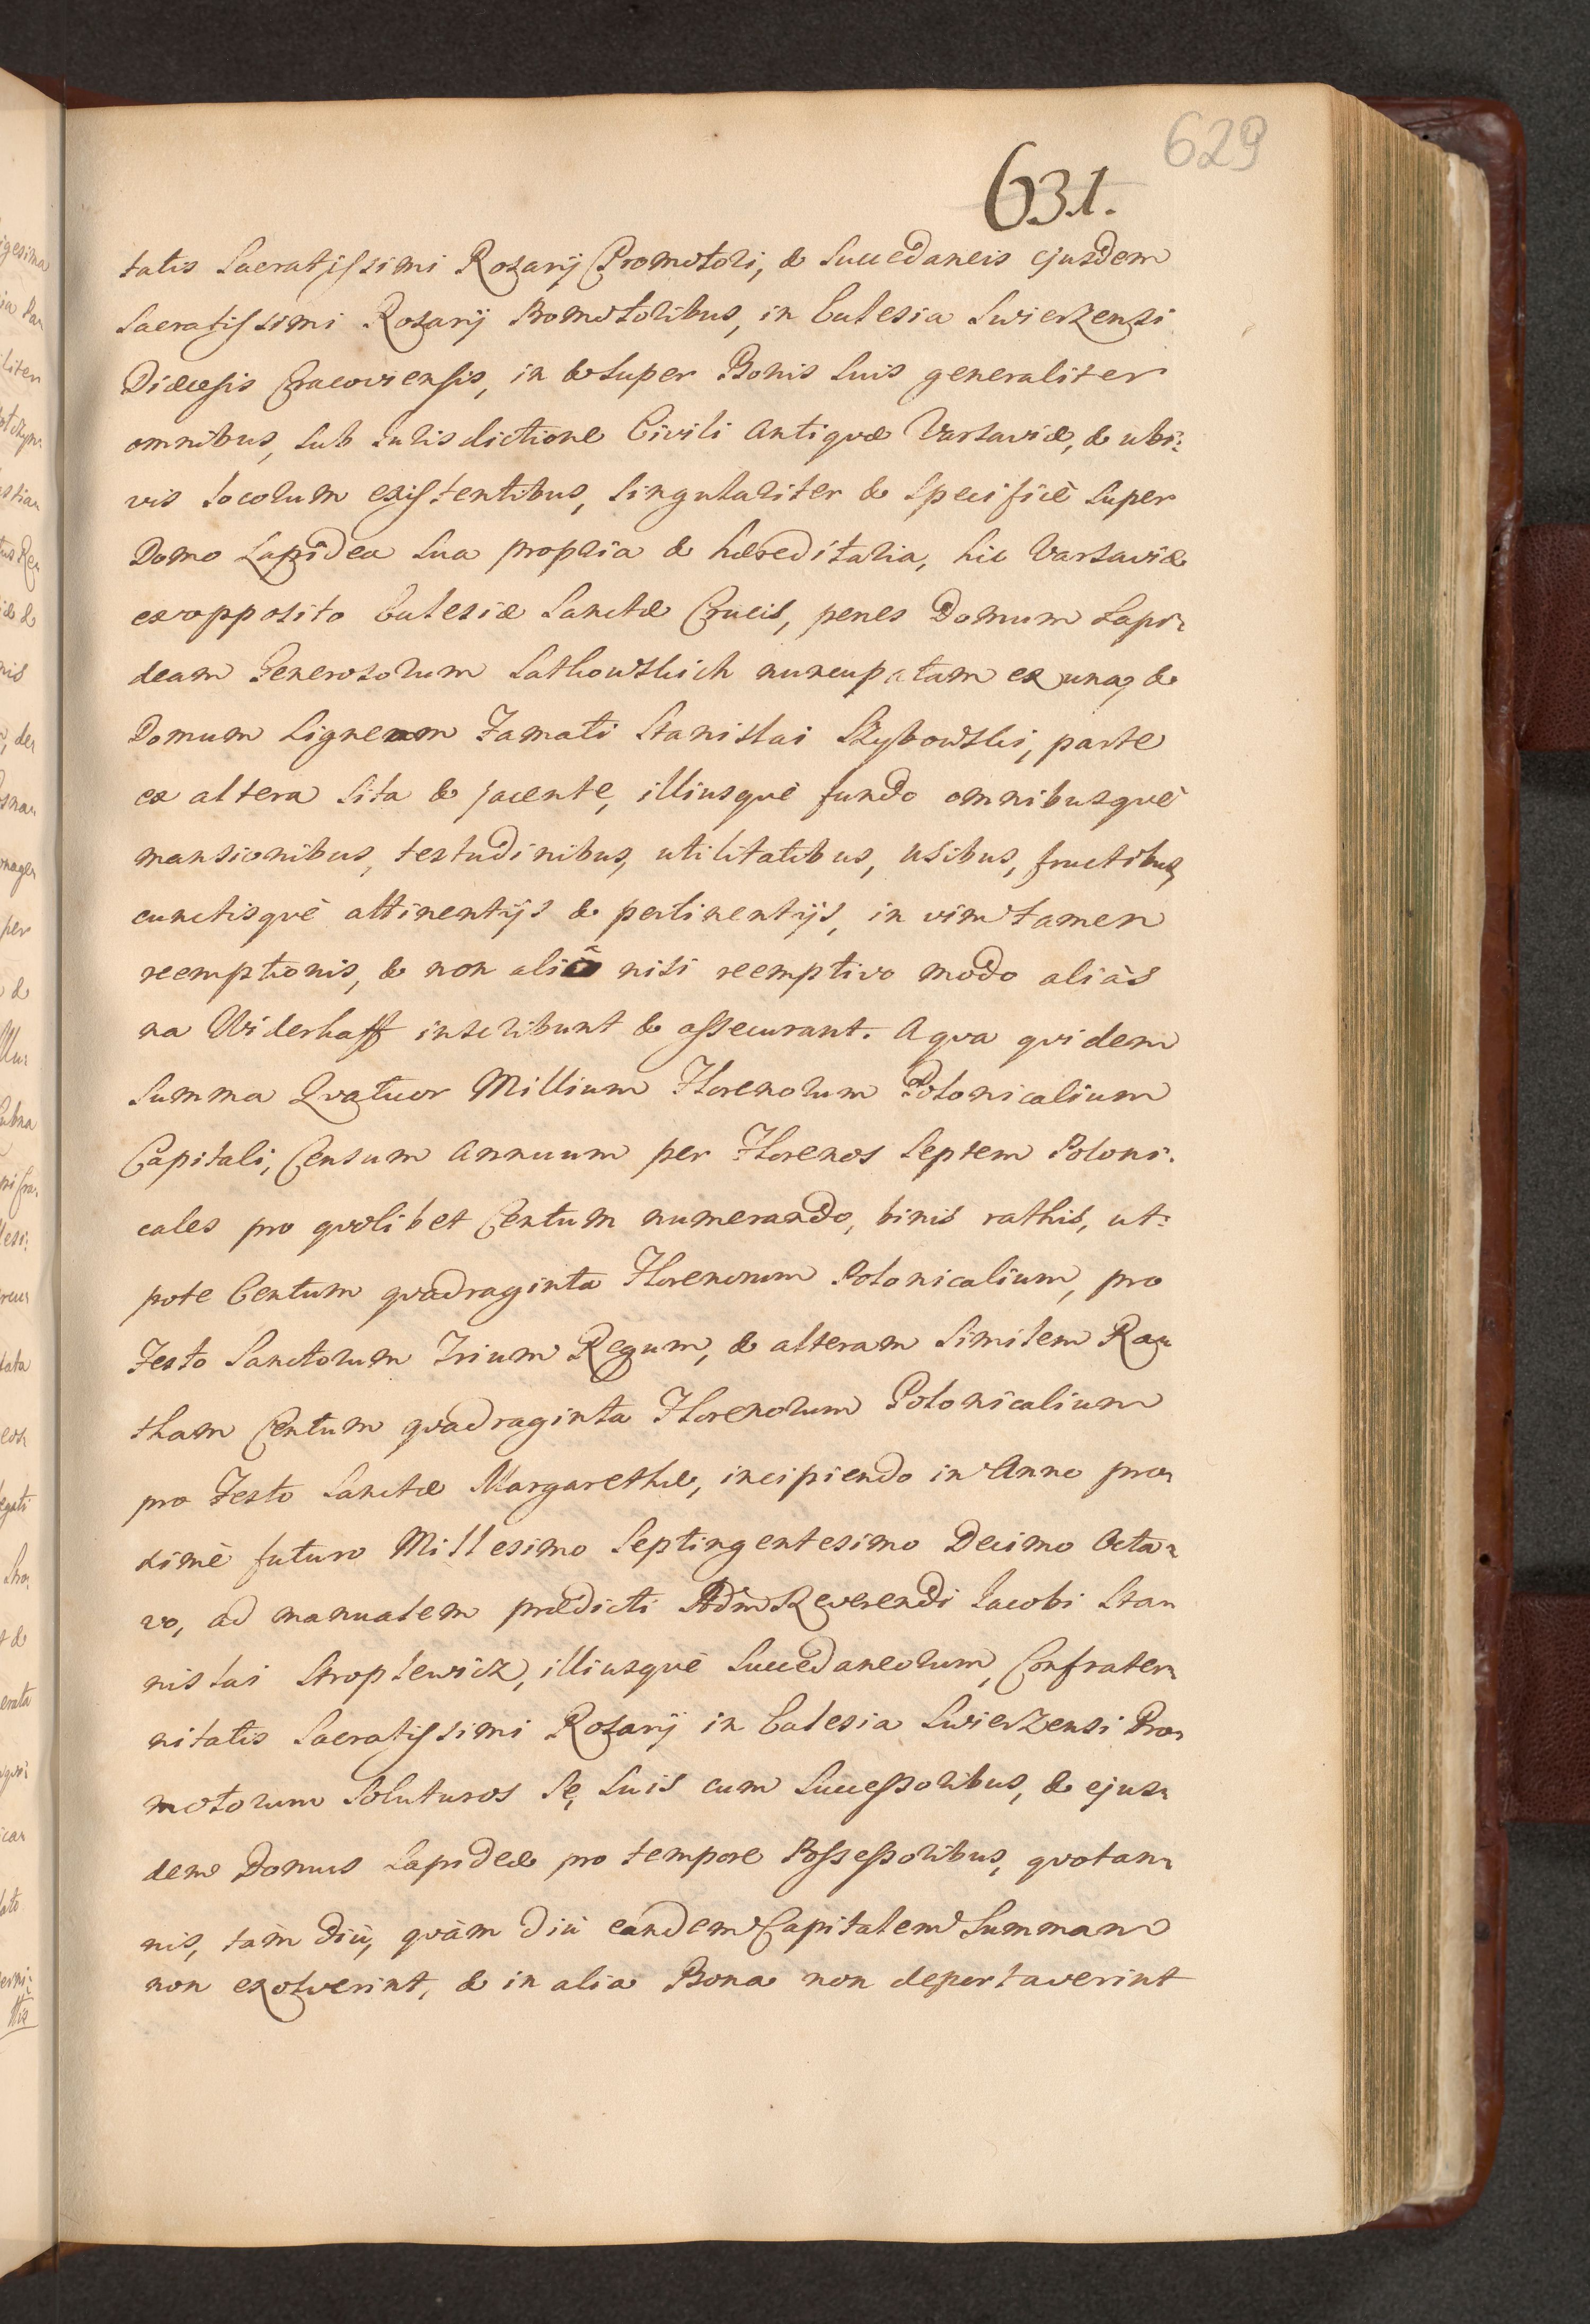 629
631.
tatis Sacratissimi Rosarij Promotori, & Succedaneis ejusdem
Sacratissimi Rosarij Promotoribus, in Ecclesia Swierzensi
Diæcesis Cracoviensis, in & super Bonis suis generaliter
omnibus, sub Jurisdictione Civili Antiquæ Varsaviæ, & ubi:
vis locorum existentibus, singulariter & specificè super
Domo Lapidea sua propria & hæreditaria, hic Varsaviæ
ex opposito Ecclesiæ Sanctæ Crucis, penes Domum Lapi-
deam Generosorum Satkowskich nuncupatam ex una, &
Domum Ligneam Famati Stanislai Skybowski, parte
ex altera sita & jacente, illiusquè fundo omnibusquè
mansionibus, testudinibus, utilitatibus, usibus, fructibus,
cunctisquè attinentijs & pertinentijs, in vim tamen
reemptionis, & non aliõ nisi reemptivo modo aliàs
na Widerkaff inscribunt & assecurant. A qva qvidem
Summa Qvatuor Millium Florenorum Polonicalium
Capitali, Censum Annuum per Florenos Septem Poloni.
cales pro qvolibet Centum numerando, binis rathis, ut:
pote Centum qvadraginta Florenorum Polonicalium, pro
Festo Sanctorum Trium Regum, & alteram similem Ra-
tham Centum qvadraginta Florenorum Polonicalium
pro Festo Sanctæ Margarethæ, incipiendo in Anno pro-
ximè futuro Millesimo Septingentesimo Decimo Octa-
vo, ad manualem prædicti Adm̃ Reverendi Jacobi Sta-
nislai Stroplewicz, illiusquè Succedaneorum, Confrater-
nitatis Sacratissimi Rosarij in Eccles​ia Swierzensi Pro-
motorum soluturos se, suis cum Successoribus, & ejus-
dem Domus Lapideæ pro tempore Possessoribus, qvotan-
nis, tàm diù, qvàm diù eandem Capitalem Summam
non exolverint, & in alia Bona non deportaverint